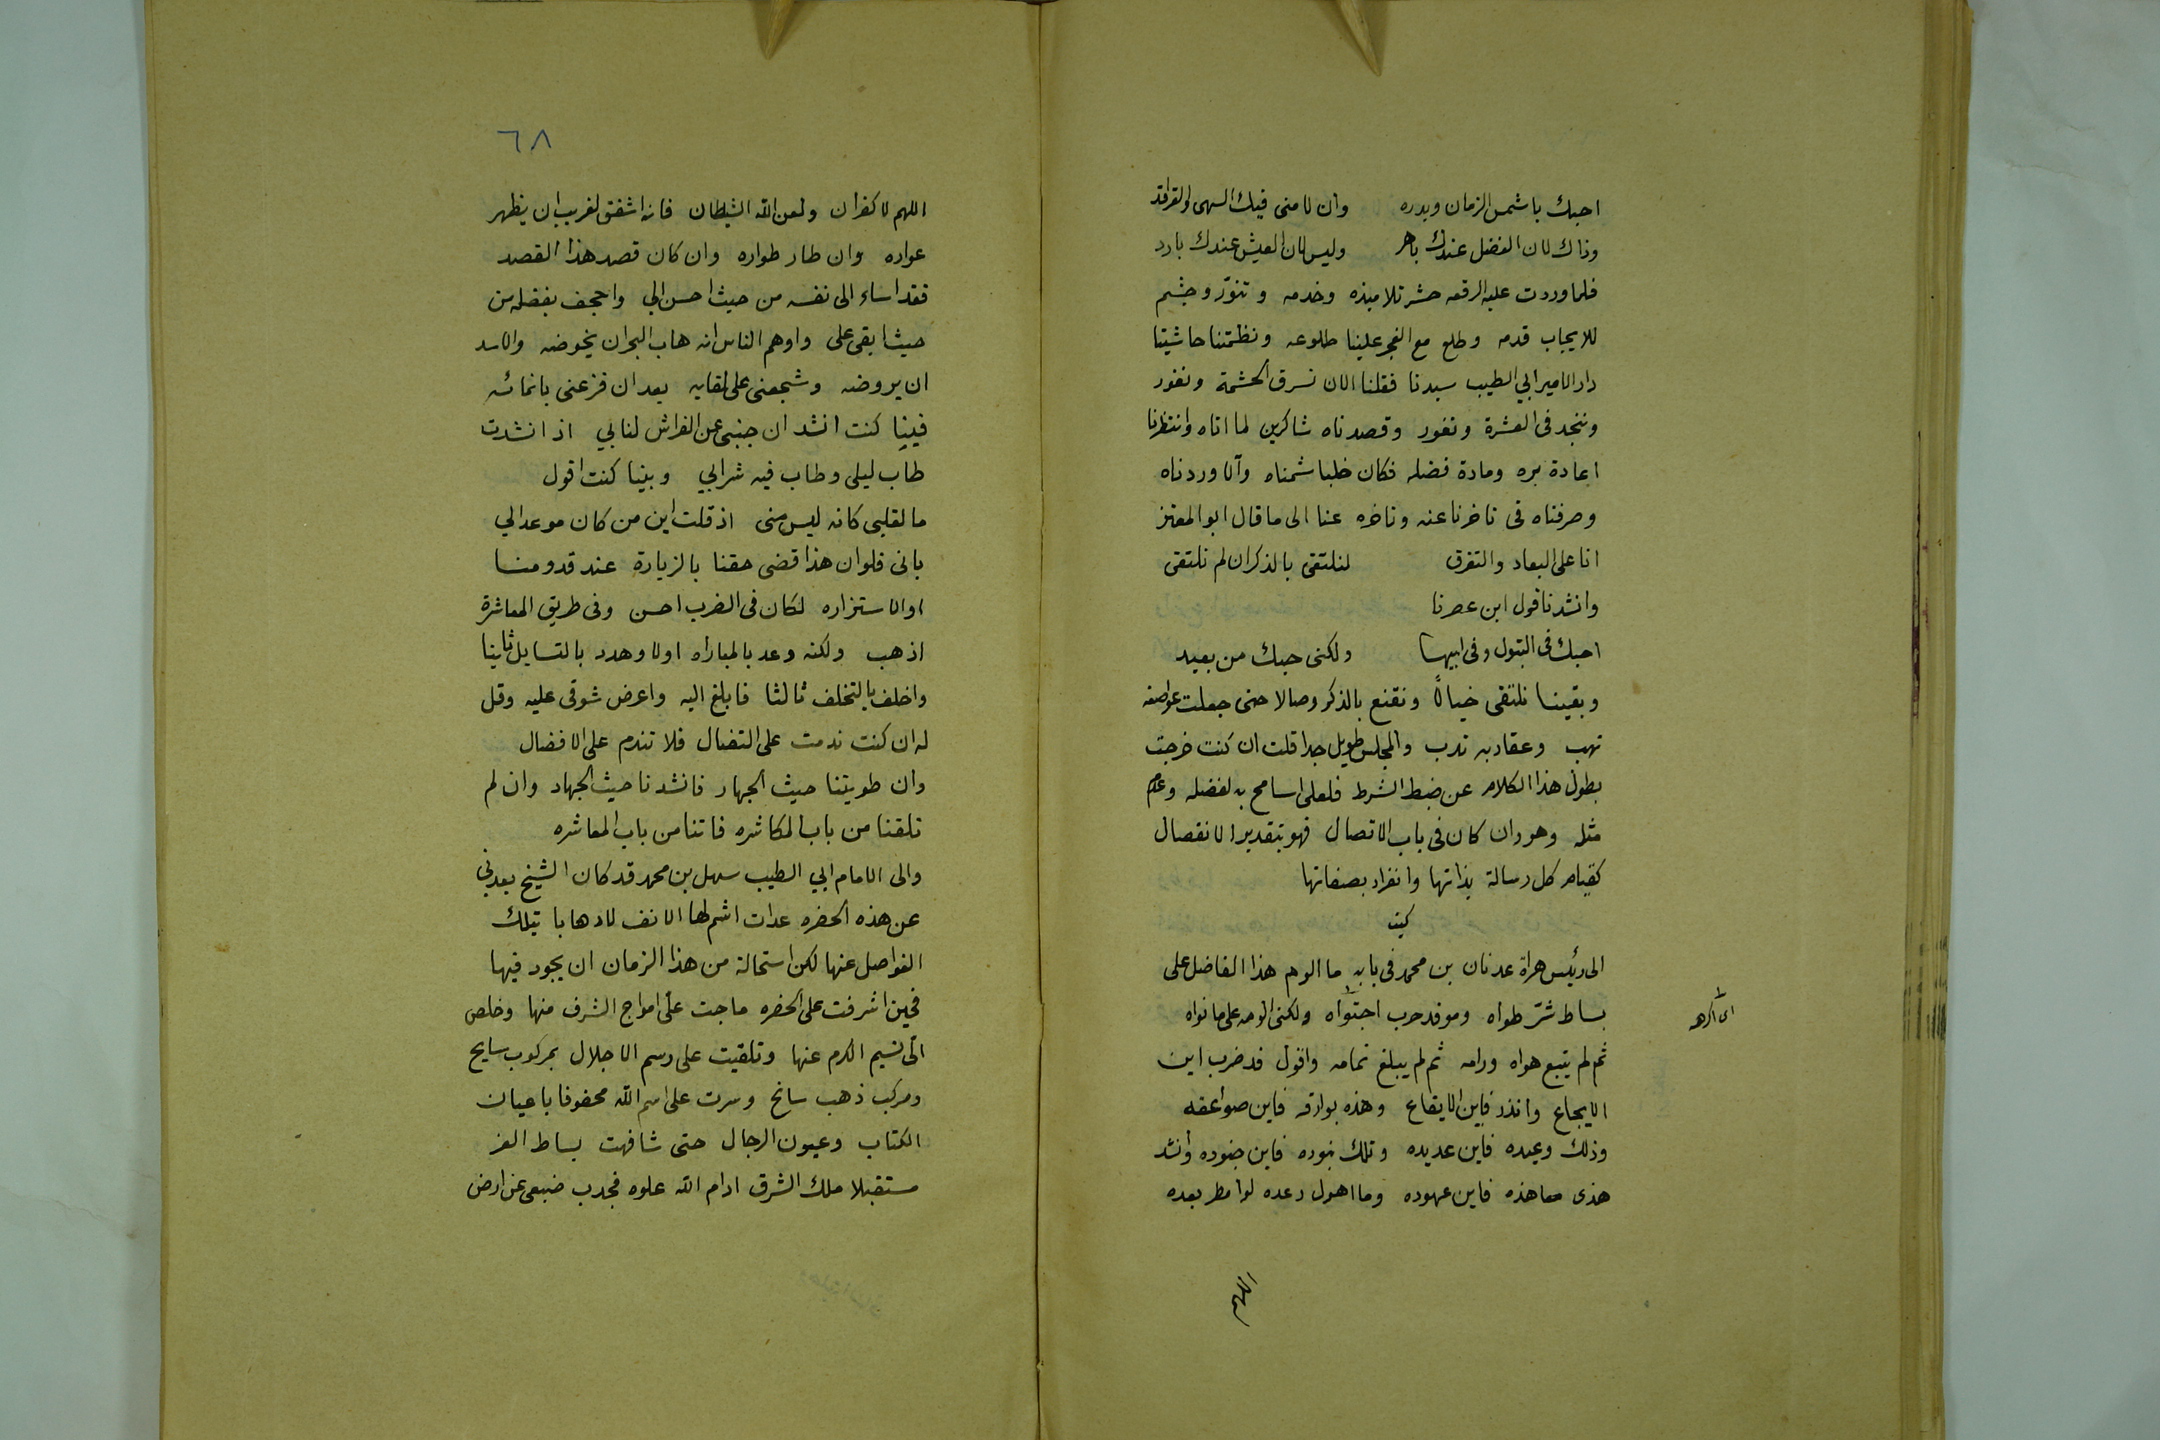 احبك يا شمس الزمان وبدره وان لامنى فيك السهى والفراقد
وذاك لان الفضل عندك باهر وليس لان العيش عندك بارد
فلما وردت عليه الرقعه حشر تلاميذه وخدمه و تنوّر وجشم
للايجاب قدمه وطلع مع الفجر علينا طلوعه ونظمتنا حاشيتا
دار الامير ابي الطيب سيدنا فقلنا الان نسرق الحشمة ونغور
وننجد فى العشرة ونغور وقصدناه شاكرين لما اتاه وانتظرنا
اعادة بره ومادة فضله فكان خلبا شمناه وآلا وردناه
وصرفناه فى تاخرنا عنه وتاخره عنا الى ما قال ابو المعتز
انا على البعاد والتفرق لنلتقى بالذكر ان لم نلتقى
وانشدنا قول ابن عصرنا
احبك فى البتول وفى ابيها ولكنى حبك من بعيد
وبقينا نلتقى خيالًا ونقنع بالذكر وصالا حتى جعلت عواصفه
تهب وعقاربه تدب والمجلس طويل جدا قلت ان كنت خرجت
بطول هذا الكلام عن ضبط الشرط فلعلى اسامح به لفضله وعدم
مثله وهو وان كان فى باب الاتصال فهو بتقدير الانفصال
كقيام كل رسالة بذاتها وانفراد بصفاتها
كتب
الى رئيس هراة عدنان بن محمد فى بابه ما الوم هذا الفاضل على
بساط شرّ طواه وموقد حرب اجتواه ولكنى الومه على ما نواه
اى اكرهه
ثم لم يتبع هواه ورامه ثم لم يبلغ تمامه واقول قد ضرب اين
الايجاع وانذر فاين الايقاع وهذه بوارقه فاين صواعقه
وذلك وعيده فاين عديده وتلك بنوده فاين جنوده وانشد
هذى معاهذه فاين عهوده وما اهول رعده لو امطر بعده
اللهم
٦٨
اللهم لا كفران ولعن الله الشيطان فانه اشفق لغريب ان يظهر
عواره وان طار طواره وان كان قصد هذا القصد
فقد اساء الى نفسه من حيث احسن الي واجحف بفضله من
حيث ابقى على واوهم الناس انه هاب البحر ان يخوضه والاسد
ان يروضه وشجعنى على لقايه بعد ان فزعنى بانمائه
فبينا كنت انشد ان جنبى عن الفراش لنابي اذ انشدت
طاب ليلى وطاب فيه شرابي وبينا كنت اقول
ما لقلبى كانه ليس منى اذ قلت اين من كان موعدا لي
بانى فلو ان هذا قضى حقنا بالزيارة عند قدومنا
او الاستزاره لكان فى الضرب احسن وفى طريق المعاشرة
اذهب ولكنه وعد بالمباراه اولا وهدد بالتسايل ثانيا
واخلف بالتخلف ثالثا فابلغ اليه واعرض شوقى عليه وقل
له ان كنت ندمت على النضال فلا تندم على الافضال
وان طويتنا حيث الجهار فانشدنا حيث الجهاد وان لم
تلقنا من باب المكاشره فاتنا من باب المعاشره
والى الامام ابي الطيب سهل بن محمد قد كان الشيخ يعدني
عن هذه الحضره عدات اشم لها الانف لا ذهابا بتلك
الفواصل عنها لكن استحالة من هذا الزمان ان يجود فيها
فحين اشرفت على الحضره ماجت على امواج الشرف منها وخلص
الى نسيم الكرم عنها وتلقيت على رسم الاجلال بمركوب سايح
ومركب ذهب سانح وسرت على اسم الله محفوفا باعيان
الكتاب وعيون الرجال حتى شافهت بساط العز
مستقبلا ملك الشرق ادام الله علوه فجدب ضبعى عن ارض